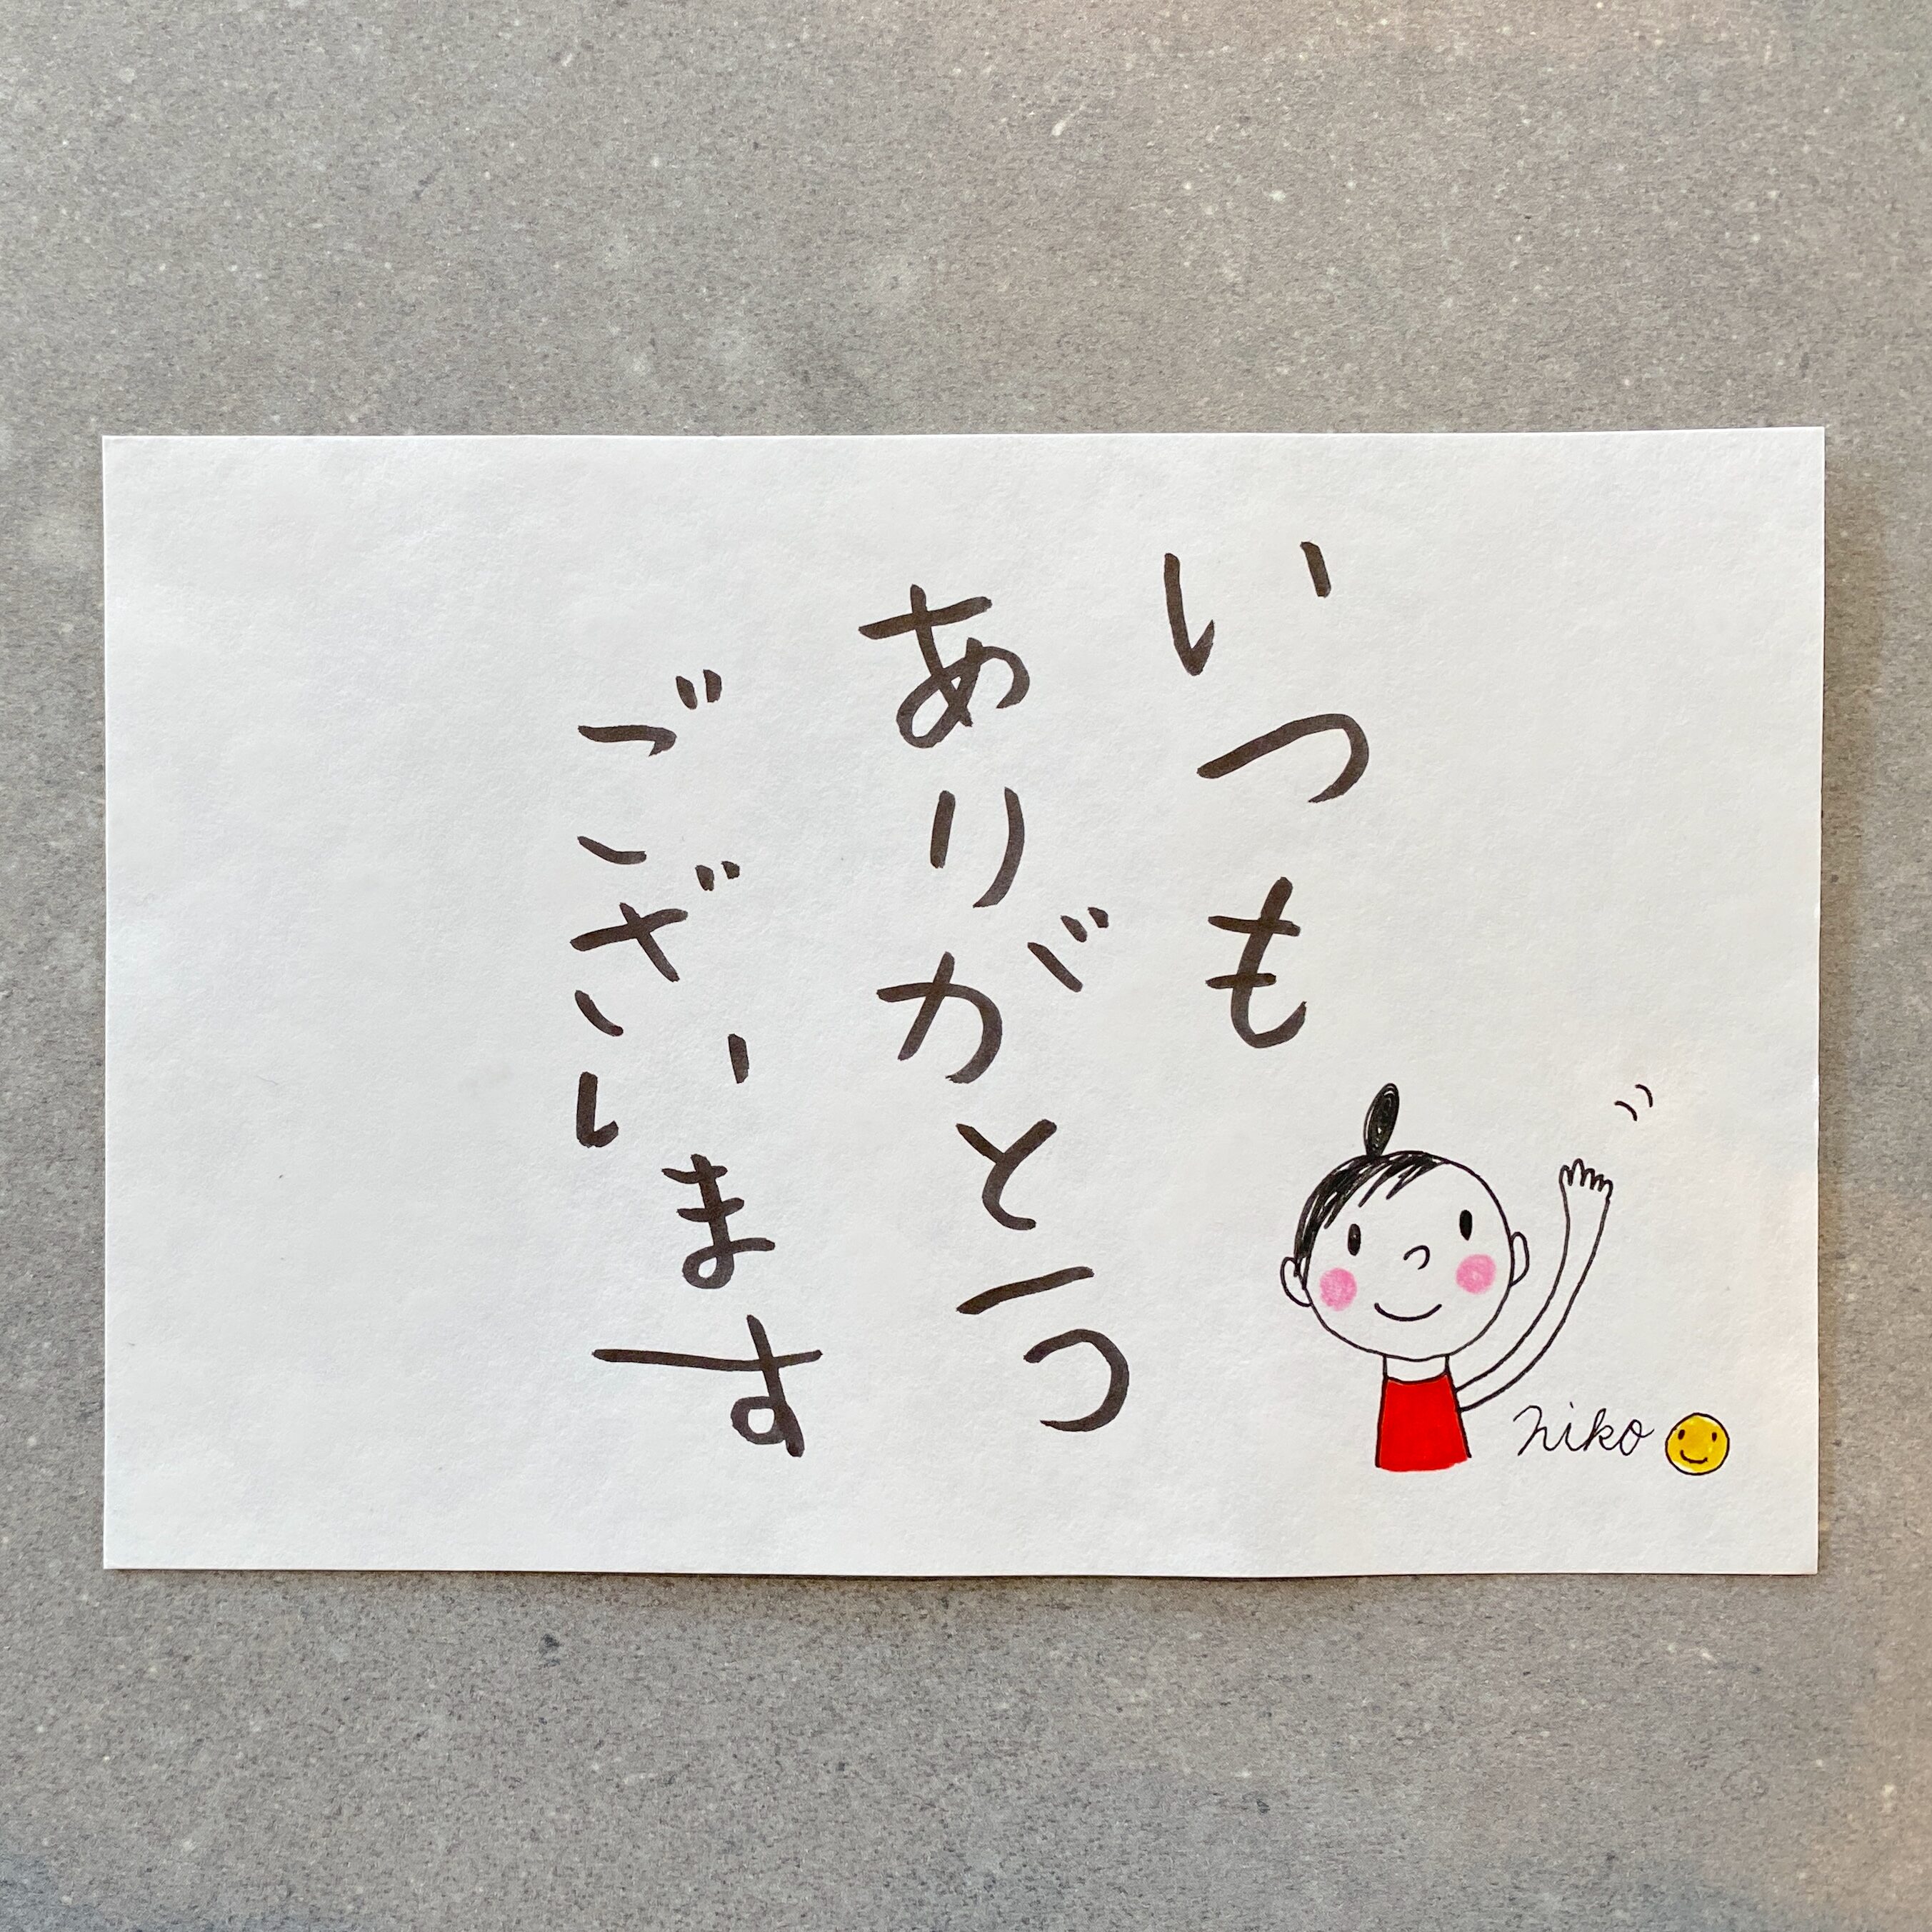 いつも
ありがとう
ございます
niko